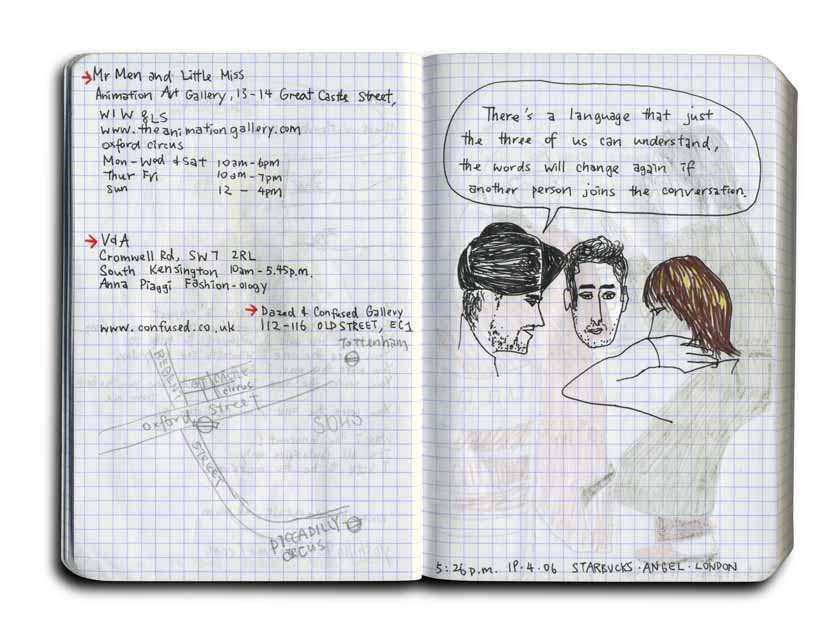 Mr Men and Little Miss
Animation Art Gallery, 13-14 Great Castle Street,
W1W 8LS
www.theanimationgallery.com
oxford circus
Mon-Wed & Sat 10am-6pm
Thur Fri 10am-7pm
Sun 12 - 4pm
V&A
Cromwell Rd, SW7 2RL
South Kensington 10am-5.45p.m.
Anna Piaggi Fashion-ology
Dazed & Confused Gallery
www.confused.co.uk 112-116 OLD STREET, EC1
Tottenham
REGENT
GT CASTLE
circus
Oxford Street
SOHO
STREET
PICCADILLY
CIRCUS
There's a language that just
the three of us can understand,
the words will change again if
another person joins the conversation.
5:26p.m. 19.4.06 STARBUCKS.ANGEL.LONDON